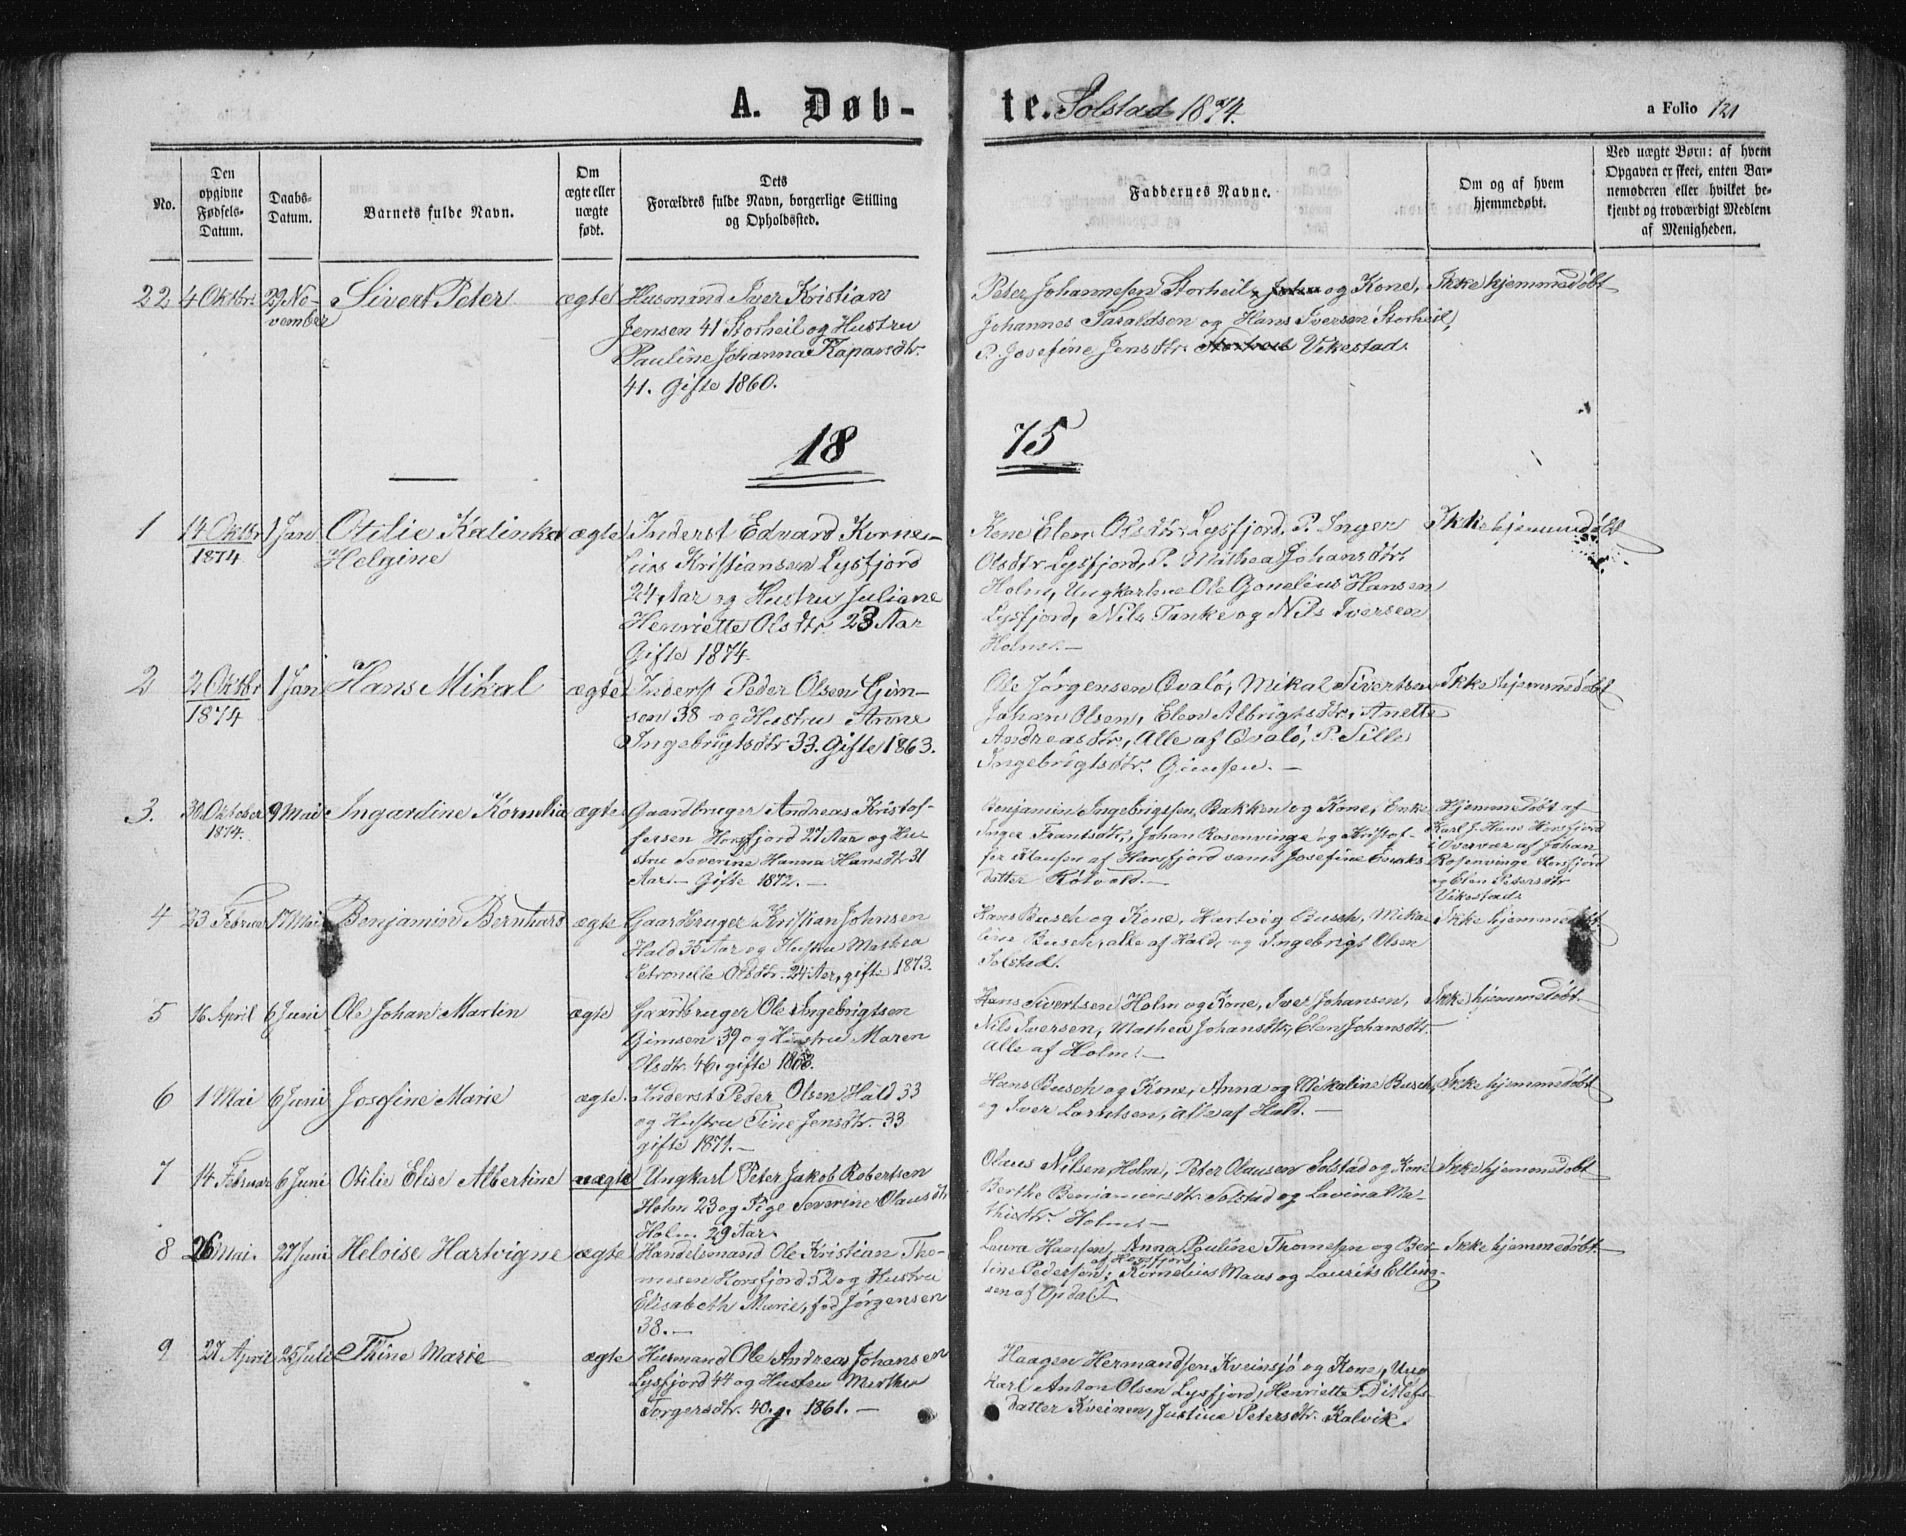 A. Døb-te. Solstad 1874. a Folio 121
No.
Den opgivne Fødsels-Datum.
Daabs-Datum.
Barnets fulde Navn.
Om ægte eller uægte født.
Dets Forældres fulde Navn, borgerlige Stilling og Opholdssted.
Faddernes Navne.
Om og af hvem hjemmedøbt.
Ved uægte Børn: af hvem Opgaven er skeet, enten Barnemoderen eller hvilket bekjendt og troværdigt Medlem af Menigheden.
22 4 Oktbr. 29 No-
vember
Sivert Peter
ægte
Husmand Iver Kristian
Jensen 41 Storheil og Hustru
Pauline Johanna Kaparsdtr.
41. Gifte 1860.
Peder Johannesen Storheil, og Kone,
Johannes Taraldsen og Hans Iversen Storheil,
P. Josefine Jensdtr. Vikestad.
Ikke hjemmedøbt
18 75
1 14 Oktbr
1874
1 Jan
Otilie Kalinka
Helgine
ægte
Inderst Edvard Korne-
lius Kristiansen Lysfjord
24 Aar og Hustru Juliane
Henriette Olsdtr. 23 Aar
Gifte 1874.
Kone Elen Olsdtr. Lysfjord, P. Inger
Olsdtr. Lysfjord, P. Mathea Johansdtr.
Holm, Ungkarlene Ole Hansen
Lysfjord, Nils Tanke og Nils Iversen
Holm. —
Ikke hjemmedøbt
2 2 Oktbr
1874
1 Jan
Hans Mikal
ægte
Inderst Peder Olsen Gim-
sen 38 og Hustru Anne
Ingebrigtsdtr. 33. Gifte 1863.
Ole Jørgensen Qvalø, Mikal Sivertsen
Johan Olsen, Elen Albrigtsdtr., Anette
Andreasdtr., Alle af Qvalø, P. Sille
Ingebrigtsdtr. Gimsen. —
Ikke hjemmedøbt
3. 30 Oktober
1874.
9 Mai
Ingardine Kornelia
ægte
Gaardbruger Andreas Kristof-
fersen Horsfjord 27 Aar og Hu-
stru Severine Hanna Hansdtr. 31
Aar. — Gifte 1872. —
Benjamin Ingebrigtsen Bakken og Kone, Enke
Inger Frantsdtr., Johan Rosenvinge og Kristof-
fer Klausen af Horsfjord samt Josefine
datter —
Hjemmedøbt af
Karl J. Hans Horsfjord
i Overvær af Johan
Rosenvinge Horsfjord
og Elen Petersdtr
Vikestad.
4 23 Februar 17 Mai
Benjamin Bernhard
ægte
Gaardbruger Kristian Johnsen
Hald 33 Aar og Hustru Mathea
Petronelle Olsdtr. 24 Aar, gifte 1873.
Hans Busch og Kone, Hartvig Busch, Mika-
line Busch, alle af Hald, og Ingebrigt Olsen
Solstad.
Ikke hjemmedøbt.
5 16 April 6 Juni
Ole Johan Martin
ægte
Gaardbruger Ole Ingebrigtsen
Gimsen 39 og Hustru Maren
Olsdtr. 46. gifte
Hans Sivertsen Holm og Kone, Iver Johansen,
Nils Iversen, Mathea Johansdtr., Elen Johansdtr.
Alle af Holm. —
Ikke hjemmedøbt
6 1 Mai 6 Juni
Josefine Marie
ægte.
Inderst Peder Olsen Hald 33
og Hustru Tine Jensdtr. 33
gifte 1871. —
Hans Busch og Kone, Anna og Mikaline Busch,
og Iver Larntsen, alle af Hald. —
Ikke hjemmedøbt
7 14 Februar 6 Juni
Otilie Elise Albertine
uægte
Ungkarl Peter Jakob Robertsen
Holm 23 og Pige Severine Olausdtr
Holm 29 Aar.
Olaus Nilsen Holm, Peter Olausen Solstad og Kone
Berthe Benjaminsdtr. Solstad og Lavina Ma-
thisdtr. Holm. —
Ikke hjemmedøbt
8 26 Mai. 27 Juni
Heloise Hartvigne
ægte
Handelsmand Ole Kristian Tho-
mesen Horsfjord 52 og Hustru
Elisabeth Marie, fød Jørgensen
38. —
Laura Hansen, Anna Pauline Thomesen og Ber-
af Horsfjord
tine Pedersen; Kornelius Maas og Laurits Elling-
sen af Opdal
Ikke hjemmedøbt
9 27 April 25 Juli
Thine Marie
ægte
Husmand Ole Andreas Johansen
Lysfjord 44 og Hustru Marthea
Torgersdtr. 40. g. 1861. —
Haagen Hermandsen Kveinsjø og Kone, Ung-
karl Anton Olsen Lysfjord, Henriette F. Ditlefs-
datter Kveinen, Justine Petersdtr. Kalvik.